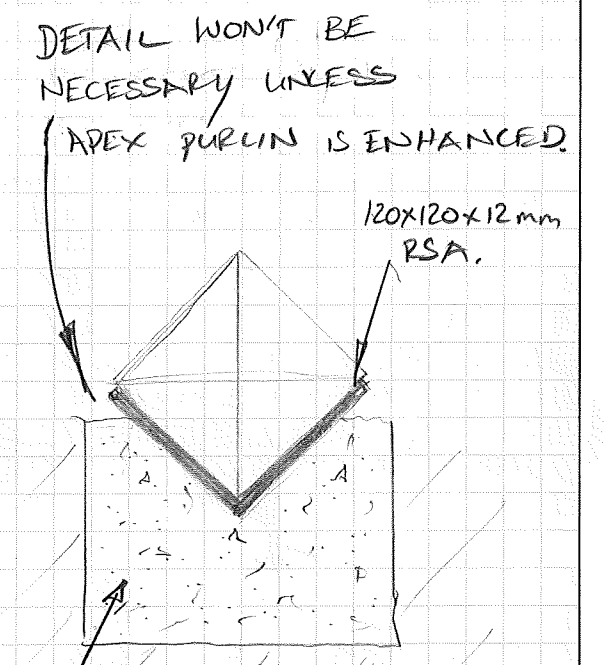 DETAIL WON'T BE
NECESSARY UNLESS
APEX PURLIN IS ENHANCED.
120x120x12mm
RSA.